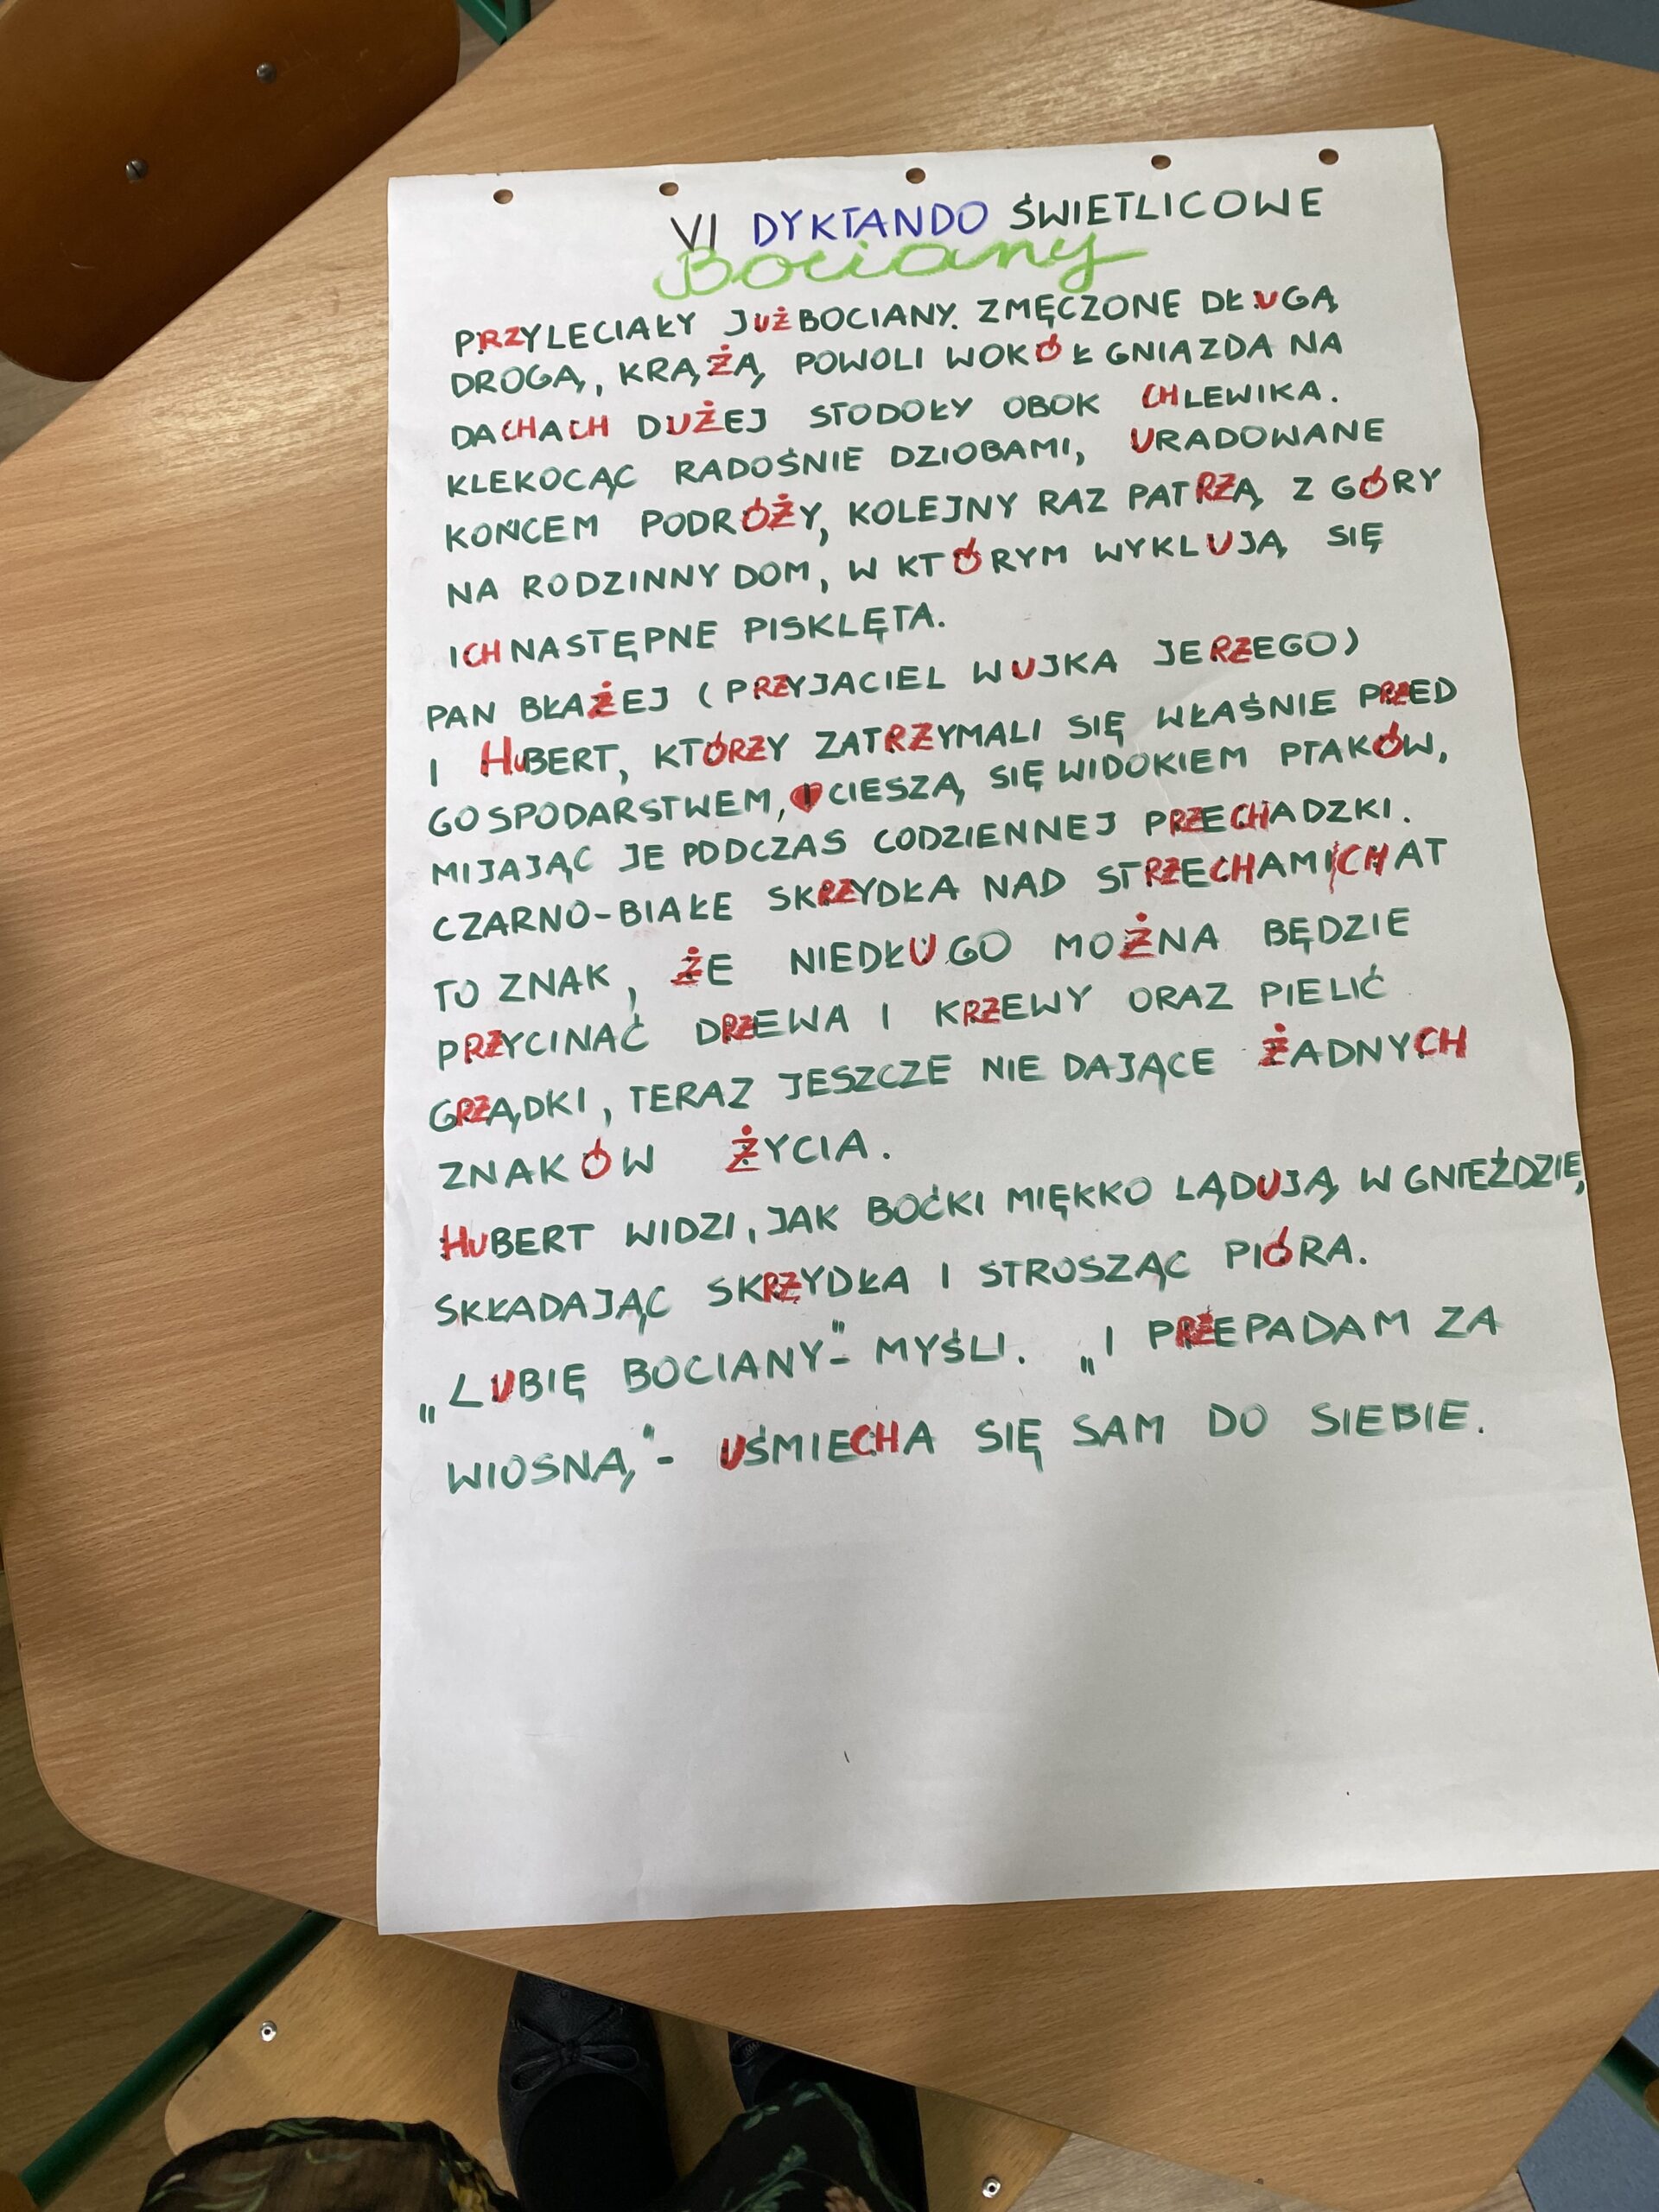 VI DYKTANDO ŚWIETLICOWE
Bociany
PRZYLECIAŁY JUŻ BOCIANY. ZMĘCZONE DŁUGĄ
DROGĄ, KRĄŻĄ POWOLI WOKÓŁ GNIAZDA NA
DACHACH DUŻEJ STODOŁY OBOK CHLEWIKA.
KLEKOCĄC RADOŚNIE DZIOBAMI, URADOWANE
KOŃCEM PODRÓŻY, KOLEJNY RAZ PATRZĄ Z GÓRY
NA RODZINNY DOM, W KTÓRYM WYKLUJĄ SIĘ
ICH NASTĘPNE PISKLĘTA.
PAN BŁAŻEJ (PRZYJACIEL WUJKA JERZEGO)
I HUBERT, KTÓRZY ZATRZYMALI SIĘ WŁAŚNIE PRZED
GOSPODARSTWEM, CIESZĄ SIĘ WIDOKIEM PTAKÓW,
MIJAJĄC JE PODCZAS CODZIENNEJ PRZECHADZKI.
CZARNO-BIAŁE SKRZYDŁA NAD STRZECHAMI CHAT
TO ZNAK, ŻE NIEDŁUGO MOŻNA BĘDZIE
PRZYCINAĆ DRZEWA I KRZEWY ORAZ PIELIĆ
GRZĄDKI, TERAZ JESZCZE NIE DAJĄCE ŻADNYCH
ZNAKÓW ŻYCIA.
HUBERT WIDZI, JAK BOĆKI MIĘKKO LĄDUJĄ W GNIEŹDZIE,
SKŁADAJĄC SKRZYDŁA I STROSZĄC PIÓRA.
„LUBIĘ BOCIANY"- MYŚLI. „I PRZEPADAM ZA
WIOSNĄ"- UŚMIECHA SIĘ SAM DO SIEBIE.